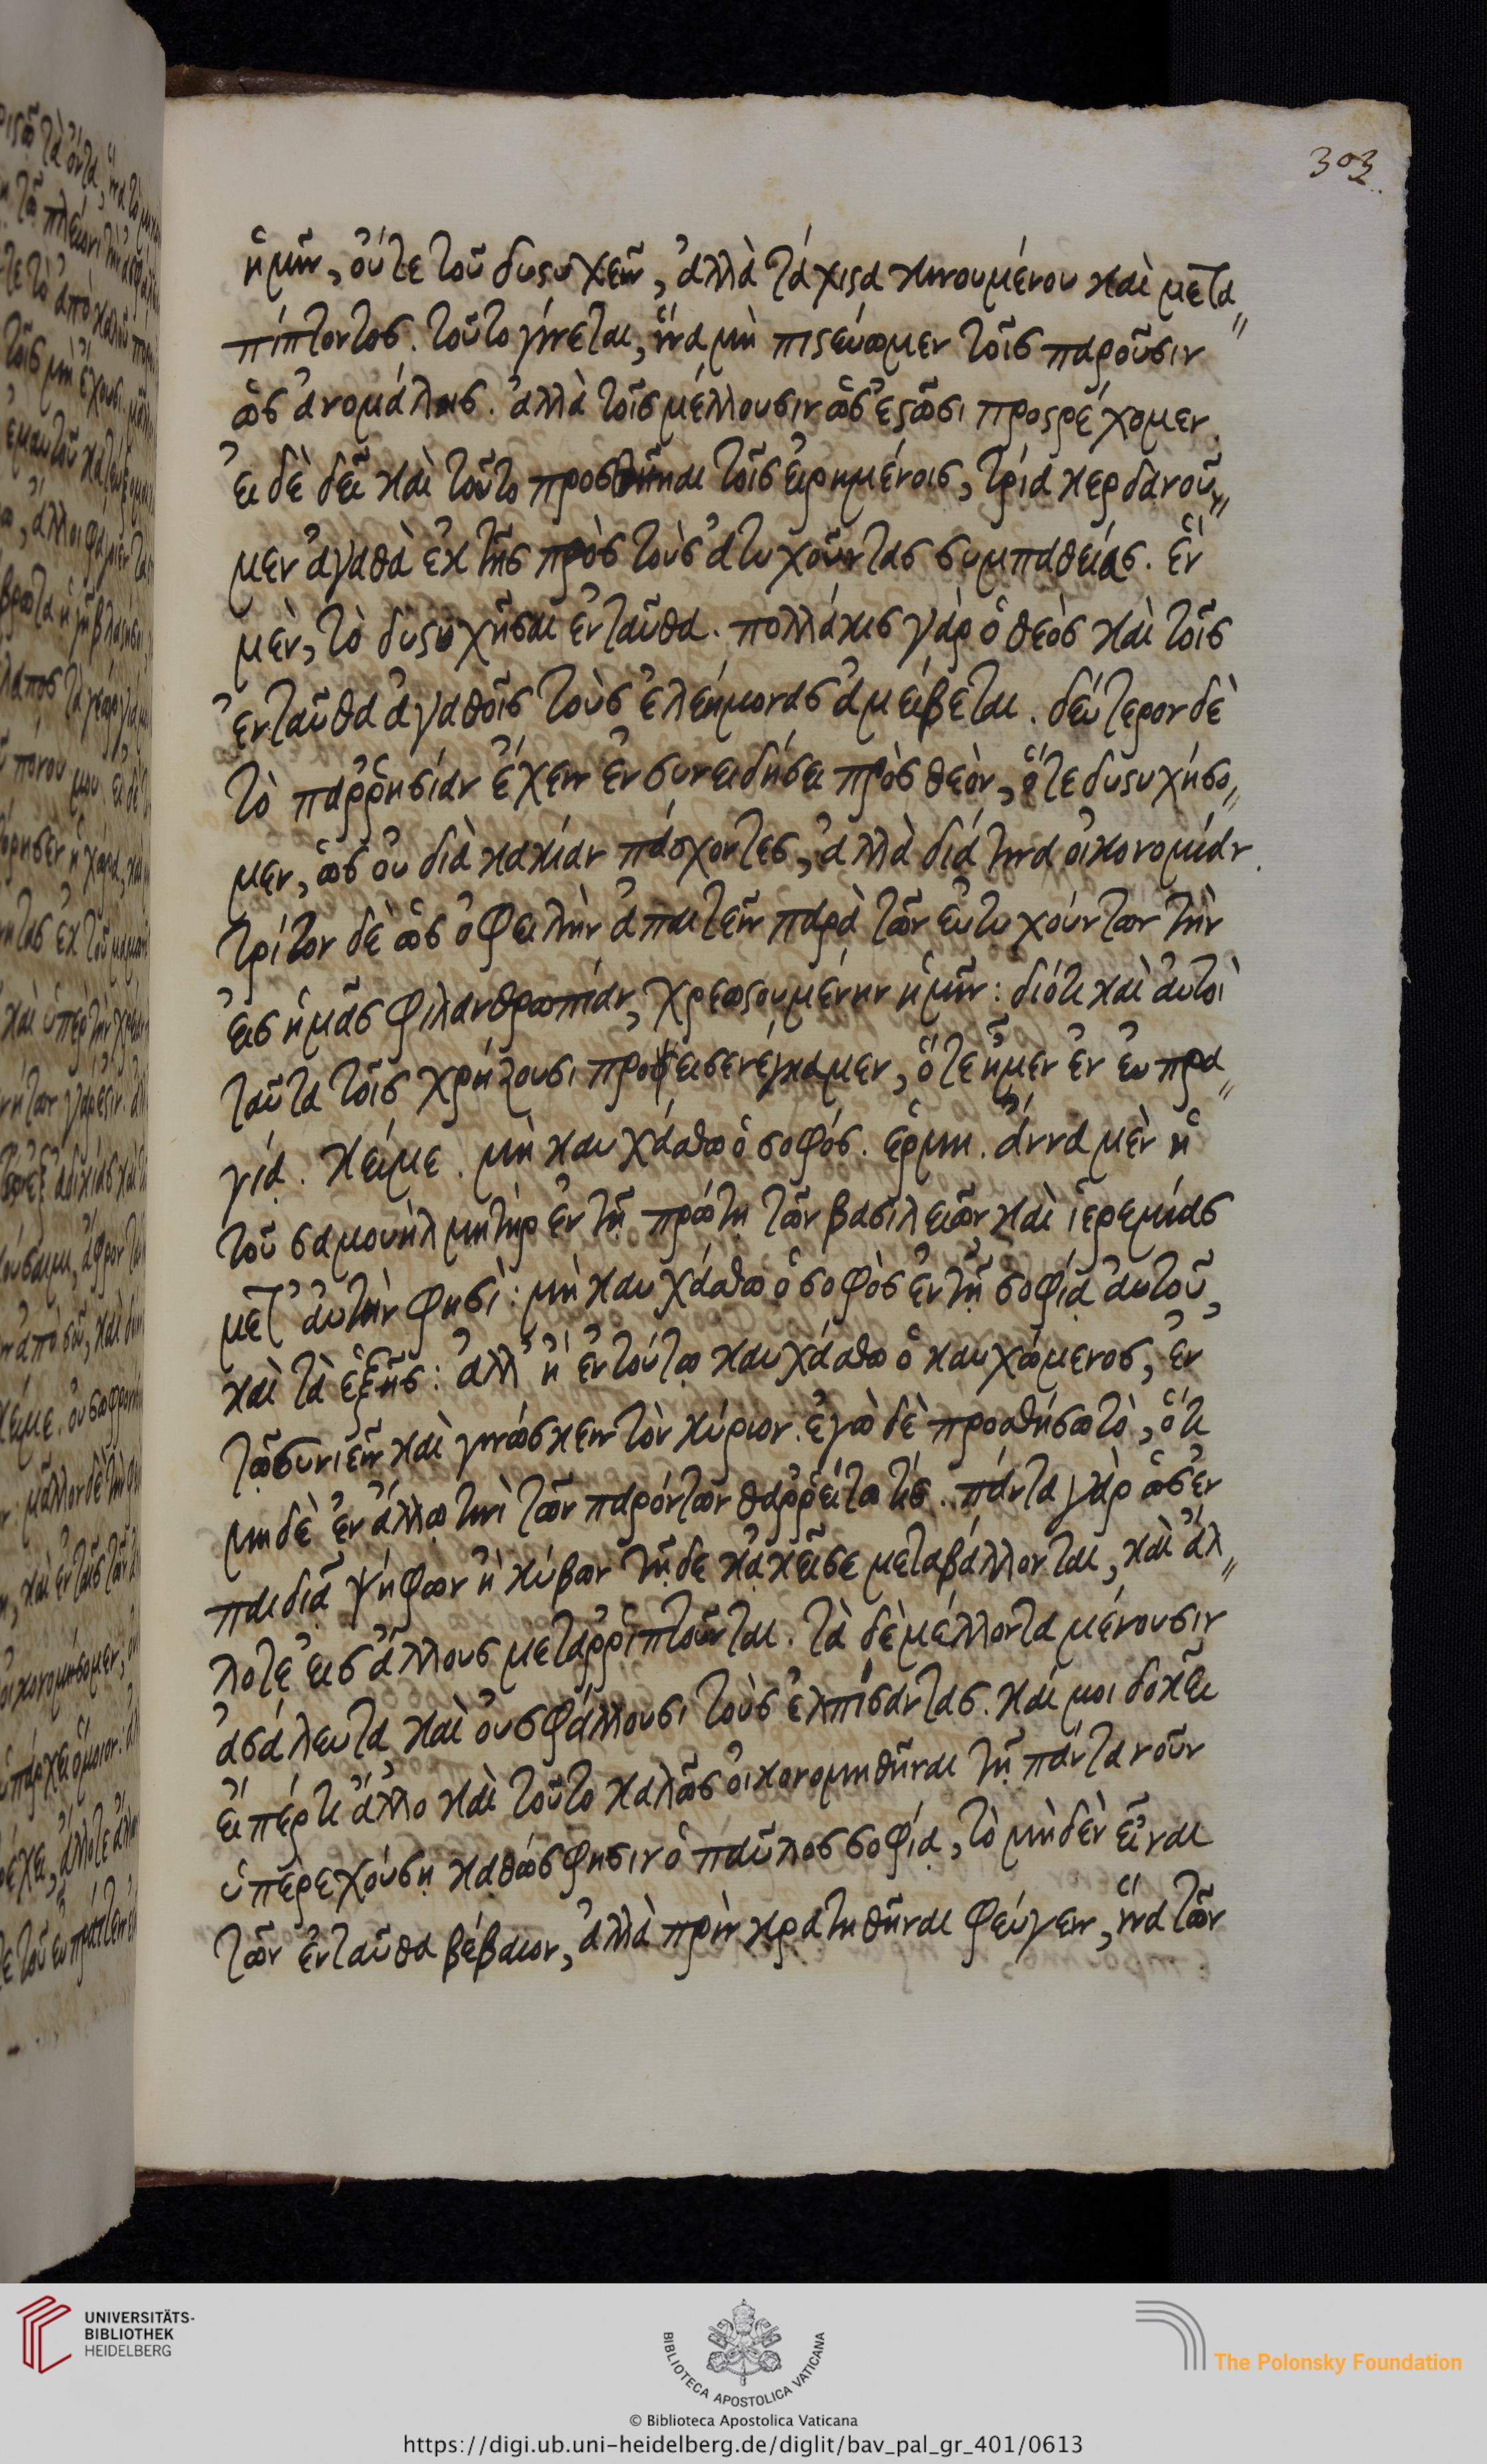 303
ἡμῖν, οὔτε τοῦ δυςυχεῖν, ἀλλὰ τάχιςα κινουμένου καὶ μετα
πίπτοντος. τοῦτο γίνεται, ἵνα μὴ πιςεύωμεν τοῖς παροῦσιν
ὡς ἀνομάλοις. ἀλλὰ τοῖς μέλλουσιν ὡς ἑςῶσι προςρέχομεν.
εἰ δὲ δεῖ καὶ τοῦτο προσθῆναι τοῖς εἰρημένοις, τρία κερδανοῦ
μεν ἀγαθὰ ἐκ τῆς πρὸς τοὺς ἀτυχοῦντας συμπαθείας. ἓν
μὲν, τὸ δυςυχῆσαι ἐνταῦθα. πολλάκις γὰρ ὁ θεὸς καὶ τοῖς
ἐνταῦθα ἀγαθοῖς τοὺς ἐλεήμονας ἀμείβεται. δεύτερον δὲ
τὸ παῤῥησίαν ἔχειν ἐν συνειδήσει πρὸς θεὸν, ὅτε δυςυχήσο
μεν, ὡς οὐ διὰ κακίαν πάσχοντες, ἀλλὰ διά τινα οἰκονομίαν.
τρίτον δὲ ὡς ὀφειλὴν ἀπαιτεῖν παρὰ τῶν εὐτυχούντων τὴν
εἰς ἡμᾶς φιλανθρωπίαν, χρεωςουμένην ἡμῖν: διότι καὶ αὐτοὶ
ταῦτα τοῖς χρῄζουσι προεισενέγκαμεν, ὅτε ἦμεν ἐν εὐπρα
γίᾳ. κείμε. μὴ καυχάσθω ὁ σοφός. ἑρμη. ἄννα μὲν ἡ
τοῦ σαμουὴλ μητὴρ ἐν τῇ πρώτῃ τῶν βασιλειῶν, καὶ ἱερεμίας
μετ' αὐτὴν φησὶ: μὴ καυχάσθω ὁ σοφὸς ἐν τῇ σοφίᾳ αὐτοῦ,
καὶ τὰ ἑξῆς: ἀλλ' ἢ ἐν τούτῳ καυχάσθω ὁ καυχώμενος, ἐν
τῷ συνιεῖν καὶ γινώσκειν τὸν κύριον. ἐγὼ δὲ προσθήσω τὸ, ὅτι
μηδὲ ἐν ἄλλῳ τινὶ τῶν παρόντων θαῤῥείτω τίς. πάντα γὰρ ὡς ἐν
παιδιᾷ ψήφων ἢ κύβων τῇδε κἀκεῖσε μεταβάλλονται, καὶ ἄλ
λοτε εἰς ἄλλους μεταῤῥιπτοῦνται. τὰ δὲ μέλλοντα μένουσιν
ἀσάλευτα καὶ οὐ σφάλλουσι τοὺς ἐλπίσαντας. καί μοι δοκεῖ
εἴπέρ τι ἄλλο καὶ τοῦτο καλῶς οἰκονομηθῆναι τῇ πάντα νοῦν
ὑπερεχούσῃ καθώς φησιν ὁ παῦλος σοφίᾳ, τὸ μὴδὲν εἶναι
τῶν ἐνταῦθα βέβαιον, ἀλλὰ πρὶν κρατηθῆναι φεύγειν, ἵνα τῶν
UNIVERSITÄTS-
BIBLIOTHEK
HEIDELBERG
BIBLIOTECA APOSTOLICA VATICANA
The Polonsky Foundation
© Biblioteca Apostolica Vaticana
https://digi.ub.uni-heidelberg.de/diglit/bav_pal_gr_401/0613